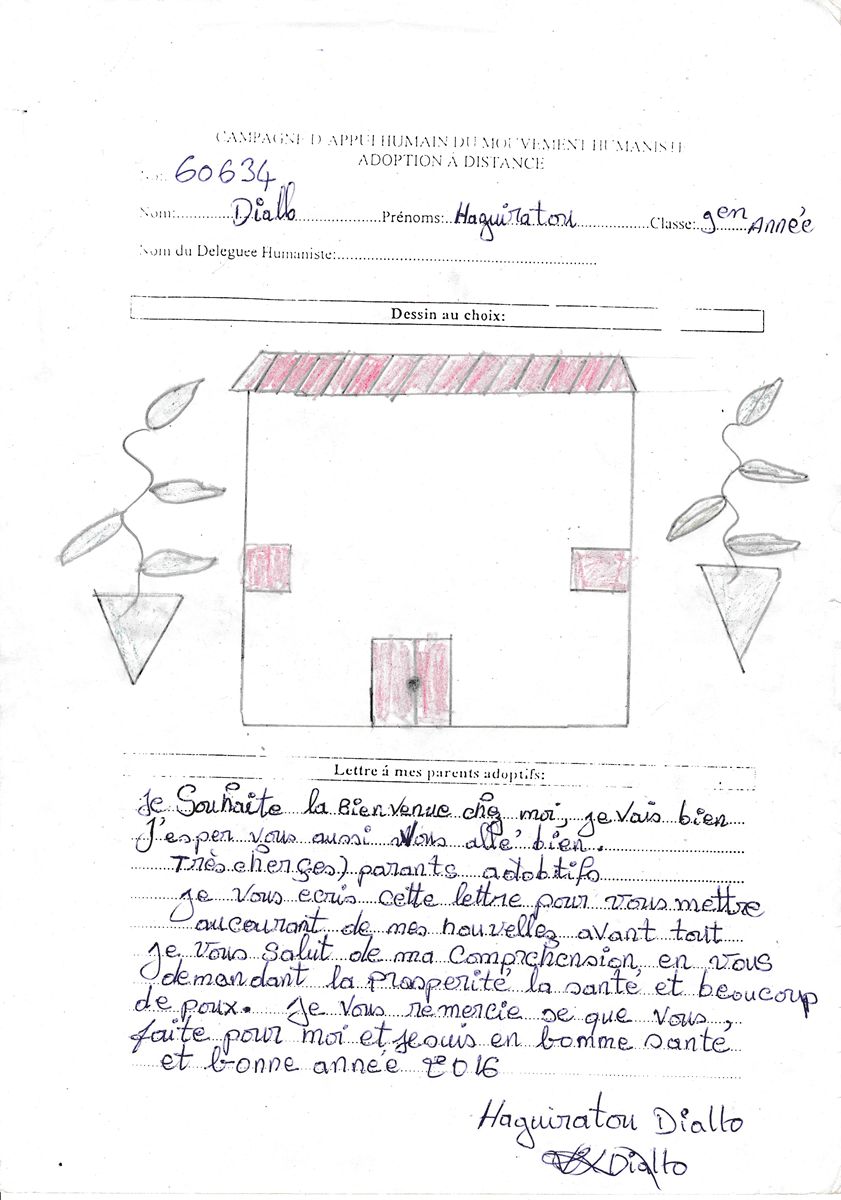 CAMPAGNE D'APPUI HUMAIN DU MOUVEMENT HUMANISTE
ADOPTION À DISTANCE
60634
Nom:......Diallo......Prénoms:..Haguiratou......Classe:..9en Année
Nom du Deleguee Humaniste:......
Dessin au choix:
Lettre á mes parents adoptifs:
Je Souhaite la Bienvenue chez moi, je vais bien
J'esper vous aussi Vous allé bien.
Très cher(es) parants adobtifs
je vous ecris cette lettre pour vous mettre
aucourant de mes nouvelles avant tout
je vous salut de ma Comprehension, en vous
demandant la Prosperité la santé et beoucoup
de poux. Je vous remercie se que vous,
faite pour moi et je suis en bomme santé
et bonne année 2016
Haguiratou Diallo
Diallo